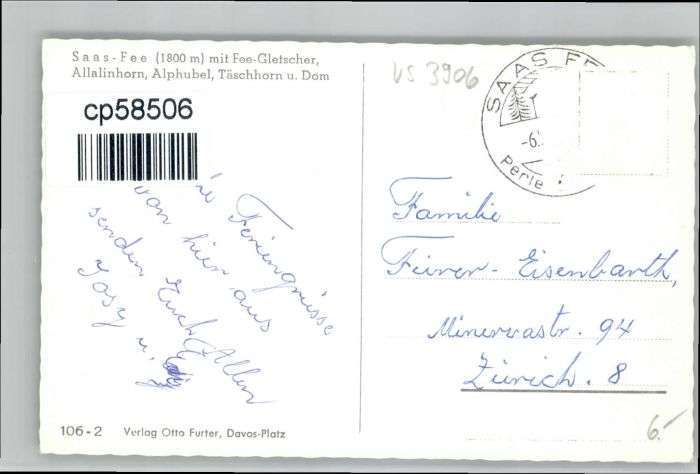 Saas-Fee (1800 m) mit Fee-Gletscher,
Allalinhorn, Alphubel, Täschhorn u. Dom
cp58506
Feriengrüsse
von hier aus
senden Euch Allen
Josy u.
106-2 Verlag Otto Furter, Davos-Platz
VS 3906
SAAS FE
-6.
Perle
Familie
Furrer-Eisenbarth,
Minervastr. 94
Zürich. 8
6.-